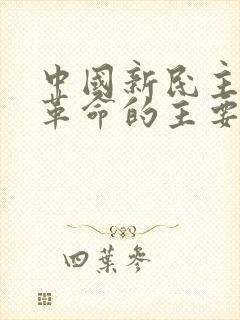 中國新民主
革命的主要
四葉參